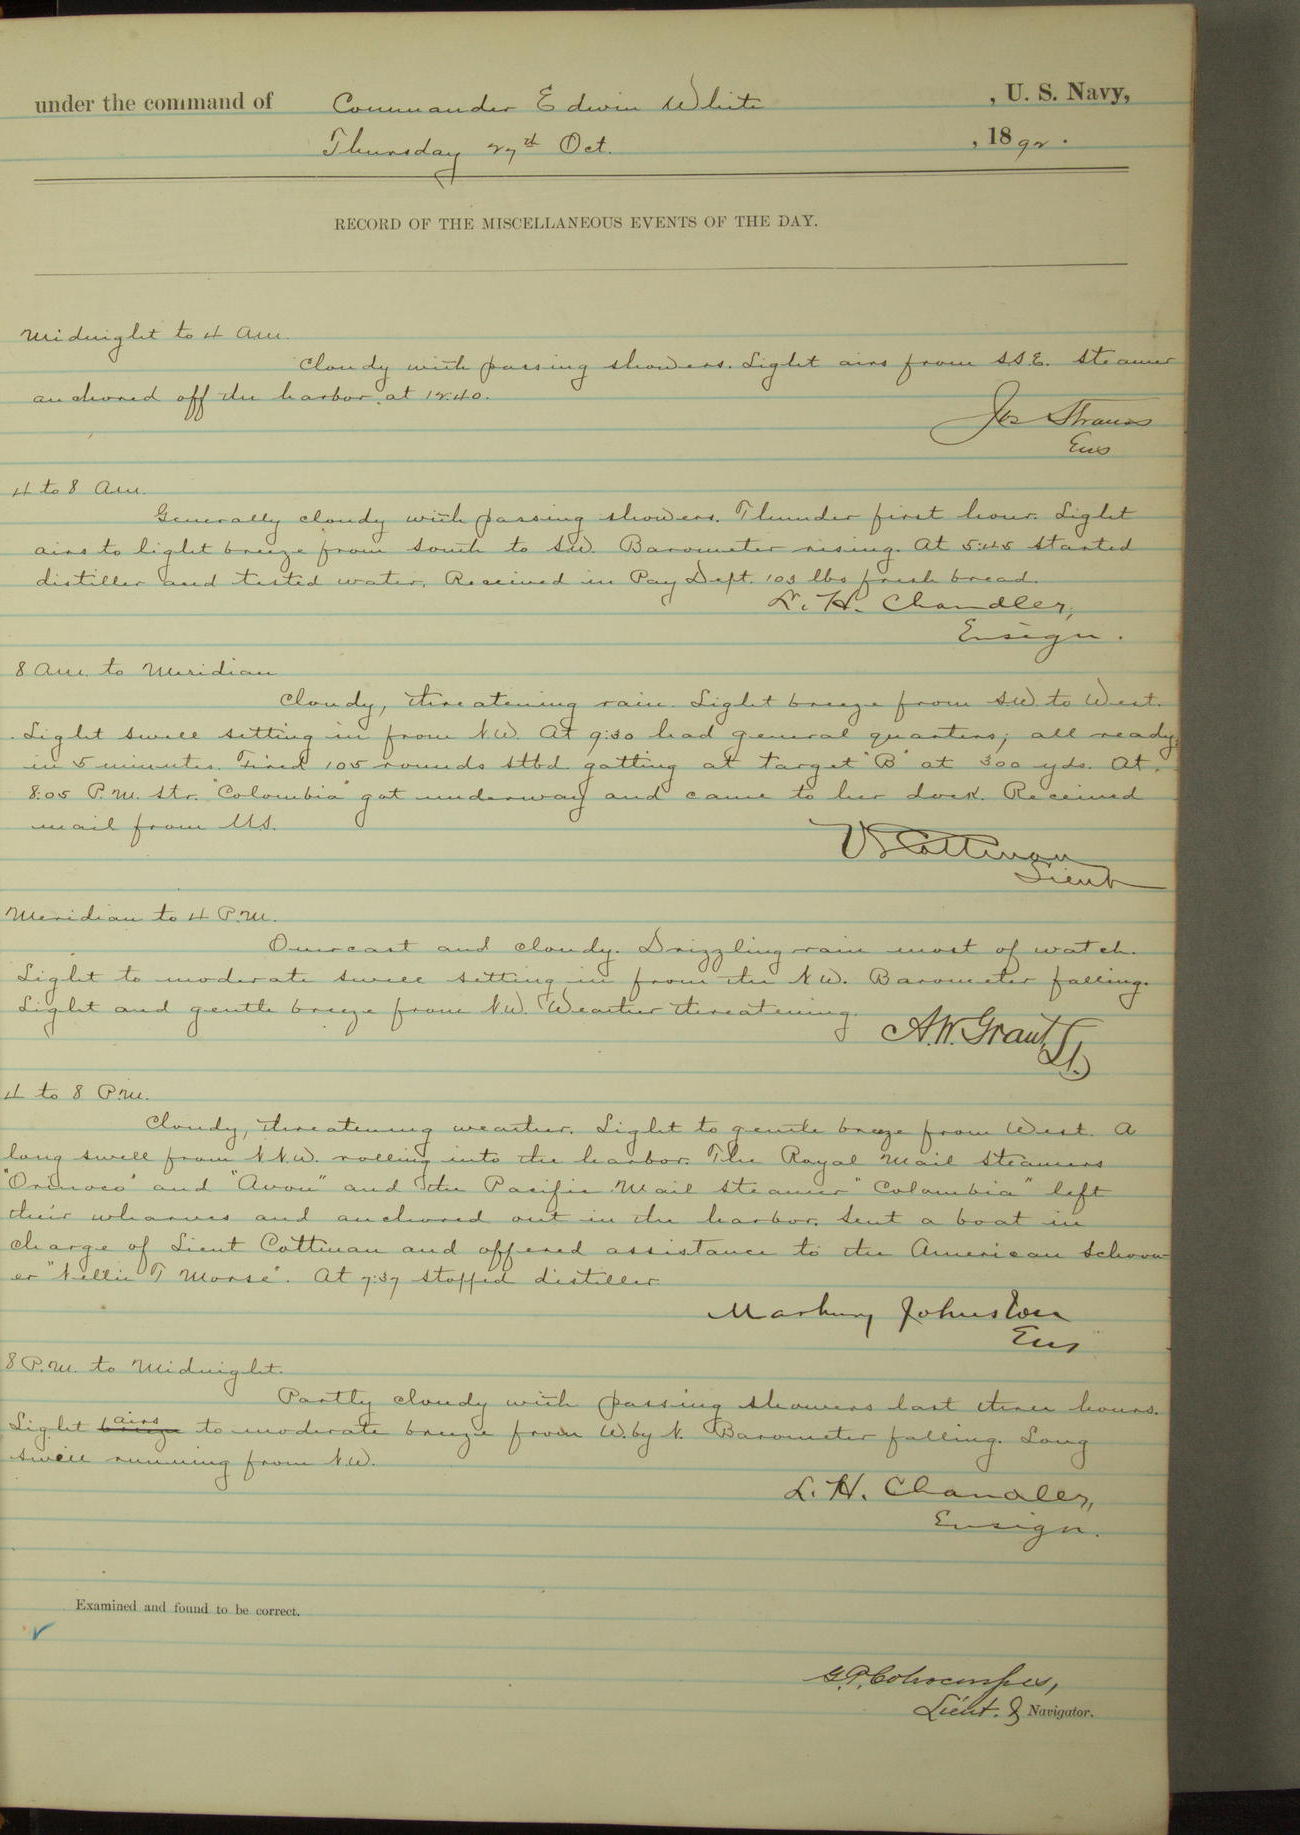 under the command of Commander Edwin White , U. S. Navy,
Thursday 27th Oct. , 1892.
RECORD OF THE MISCELLANEOUS EVENTS OF THE DAY.
Midnight to 4 Am.
Cloudy with passing showers. Light airs from S.S.E. Steamer
anchored off the harbor at 12.40.
Jos Strauss
Ens
4 to 8 Am.
Generally cloudy with passing showers. Thunder first hour. Light
airs to light breeze from South to SW. Barometer rising. At 5:45 started
distiller and tested water. Received in Pay Dept. 103 lbs fresh bread.
L. H. Chandler,
Ensign.
8 Am. to Meridian
Cloudy, threatening rain. Light breeze from SW. to West.
Light swell setting in from NW. At 9:30 had general quarters; all ready
in 5 minutes. Fired 105 rounds stbd. gatling at target "B" at 300 yds. At
8:05 P.M. Str. "Colombia" got underway and came to her dock. Received
mail from U.S.
V S Cottman
Lieut
Meridian to 4 P.M.
Overcast and cloudy. Drizzling rain most of watch.
Light to moderate swell setting in from the NW. Barometer falling.
Light and gentle breeze from NW. Weather threatening.
A. W. Grant, Lt.
4 to 8 P.M.
Cloudy, threatening weather. Light to gentle breeze from West. A
long swell from N.N.W. rolling into the harbor. The Royal Mail Steamers
"Orinoco" and "Avon" and the Pacific Mail Steamer "Colombia" left
their wharves and anchored out in the harbor. Sent a boat in
charge of Lieut Cottman and offered assistance to the American Schoon-
er "Nellie T Morse". At 7:37 stopped distiller
Marbury Johnston
Ens
8 P.M. to Midnight.
Partly cloudy with passing showers last three hours.
Light breeze airs to moderate breeze from W. by N. Barometer falling. Long
swell running from N.W.
L. H. Chandler,
Ensign.
Examined and found to be correct.
G. P.
Lieut. & Navigator.